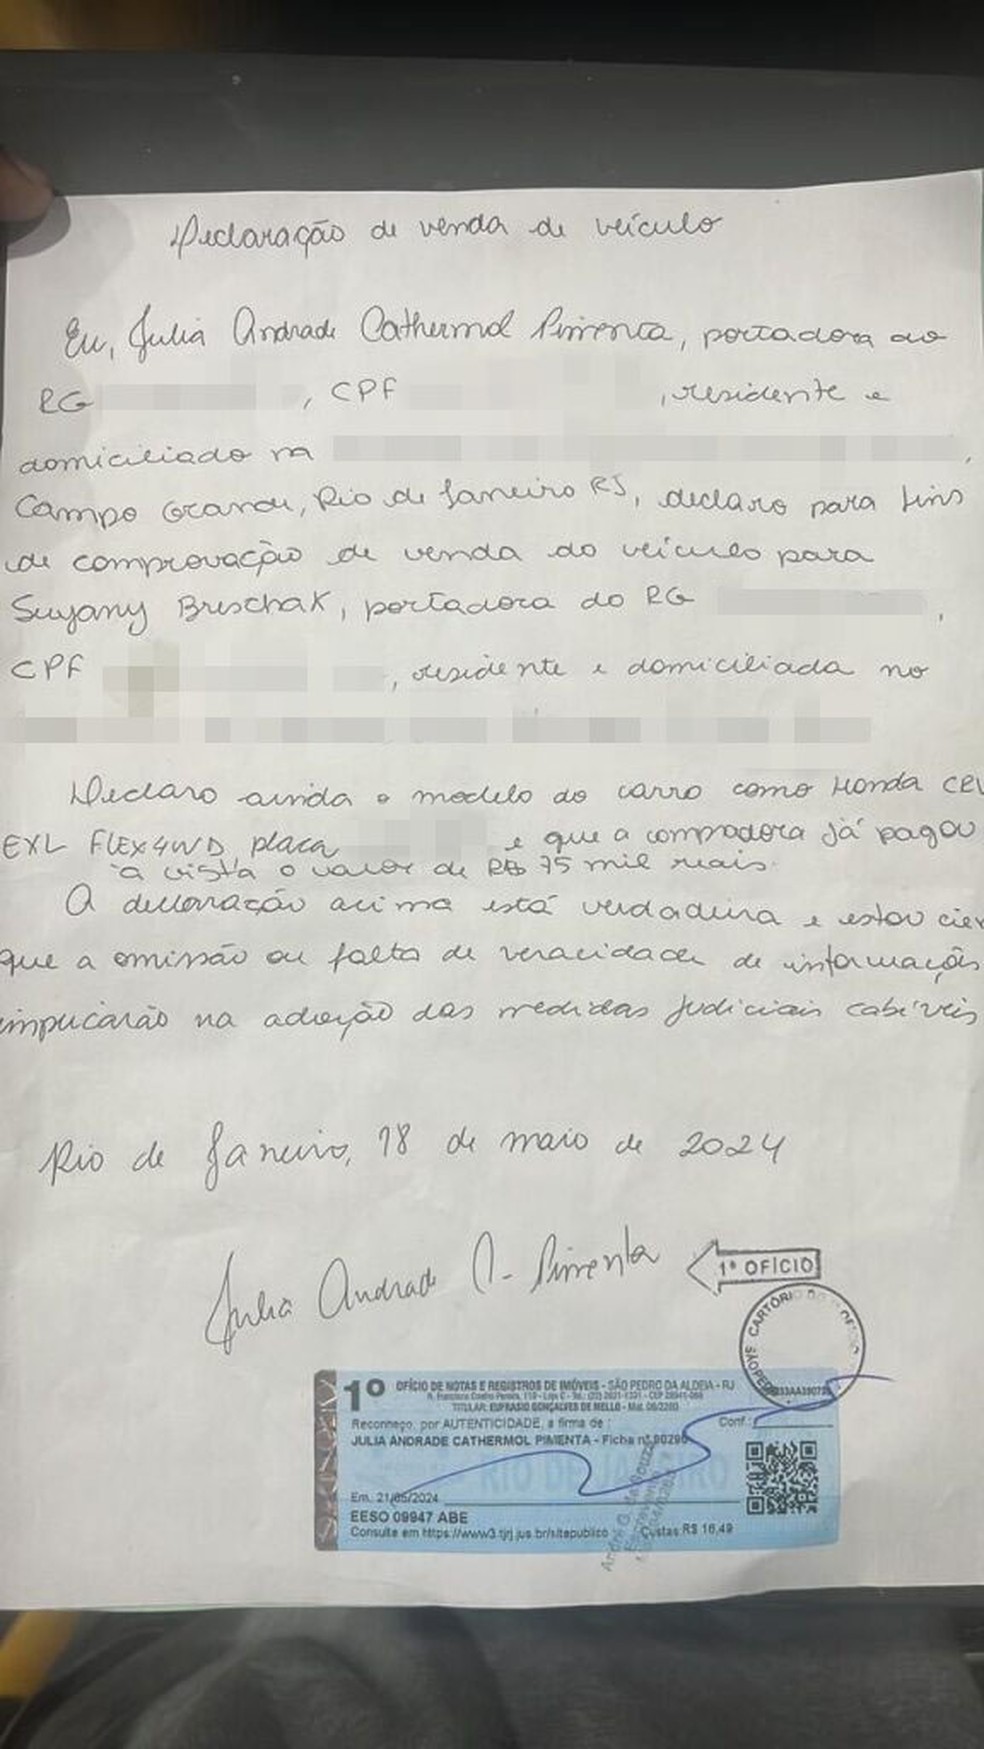 Declaração de venda de veículo
Eu, Julia Andrade Cathermol Pimenta, portadora do
RG , CPF , residente e
domiciliado na ,
Campo Grande, Rio de Janeiro RJ, declaro para fins
de comprovação de venda do veículo para
Suyany Breschak, portadora do RG ,
CPF , residente e domiciliada no
Declaro ainda o modelo do carro como Honda CRV
EXL FLEX4WD placa e que a compradora já pagou
à vista o valor de R$ 75 mil reais.
A declaração acima está verdadeira e estou cien
que a omissão ou falta de veracidade de informaçõs
implicarão na adoção das medidas judiciais cabíveis
Rio de Janeiro, 18 de maio de 2024
Julia Andrade C. Pimenta
1º OFÍCIO
CARTÓRIO DO
1º OFÍCIO DE NOTAS E REGISTROS DE IMÓVEIS - SÃO PEDRO DA ALDEIA - RJ
TITULAR: EUFRASIO GONÇALVES DE MELLO -
Reconheço, por AUTENTICIDADE, a firma de : Conf.:
JULIA ANDRADE CATHERMOL PIMENTA - Ficha nº
RIO DE JANEIRO
Em. 21/05/2024
EESO 09947 ABE
Consulte em https://www3.tjrj.jus.br/sitepublico Custas R$ 16,49